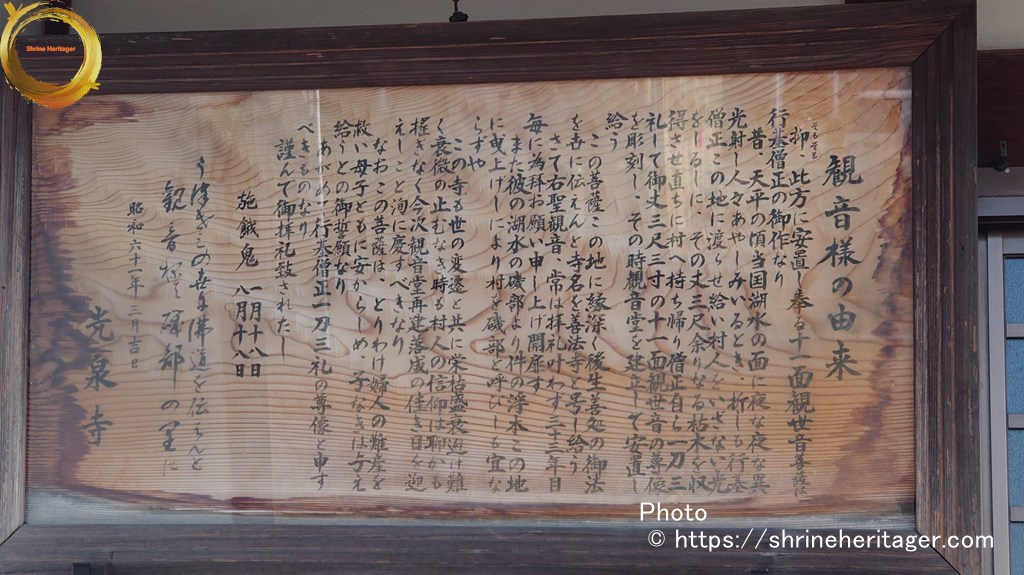 Shrine Heritager
観音様の由来
そもそも
抑、此方に安置し奉る十一面観世音菩薩は
行基僧正の御作なり
昔、天平の頃当国湖水の面に夜な夜な異
光射し人々あやしみいるとき、折しも行基
僧正この地に渡らせ給い村人をいざない光
をしるしに、その丈三尺余りなる枯木を収
得させ直ちに村へ持ち帰り僧正自ら一刀三
礼して御丈三尺三寸の十一面観世音の尊像
を彫刻し、その時観音堂を建立して安置し
給う
この菩薩この地に縁深く後生善処の御法
を世に伝えんと寺名を善法寺と号し給う
さて右聖観音、常は拝礼叶わず三十三年目
毎に為拝お願い申し上げ開扉す
また彼の湖水の磯部より件の浮木この地
に曳上げしにより村を磯部と呼びしも宜な
らずや
この寺も世の変遷と共に栄枯盛衰避け難
く衰微の止むなき時も村人の信仰は聊かも
揺ぎなく今次観音堂再建落成の佳き日を迎
えしこと洵に慶すべきなり
なおこの菩薩は、とりわけ婦人の難産を
救い母子ともに安からしめ、子なきは与え
給うとの御誓願なり
あがめて行基僧正一刀三礼の尊像と申す
べきものなり
謹んで御拝礼致されたし
施餓鬼 一月十八日
八月十八日
うけつぎこの世に佛道を伝えんと
観音様と磯部の里に
昭和六十一年三月吉日
光泉寺
Photo
© https://shrineheritager.com